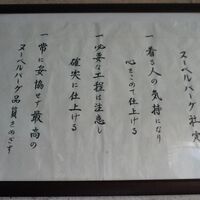 ヌーベルバーグ 社実
一 着る人の気持になり
心をこめて仕上げる
一 必要な工程は注意し
確実に仕上げる
一 常に妥協せず最高の
ヌーベルバーグ品質をめざす